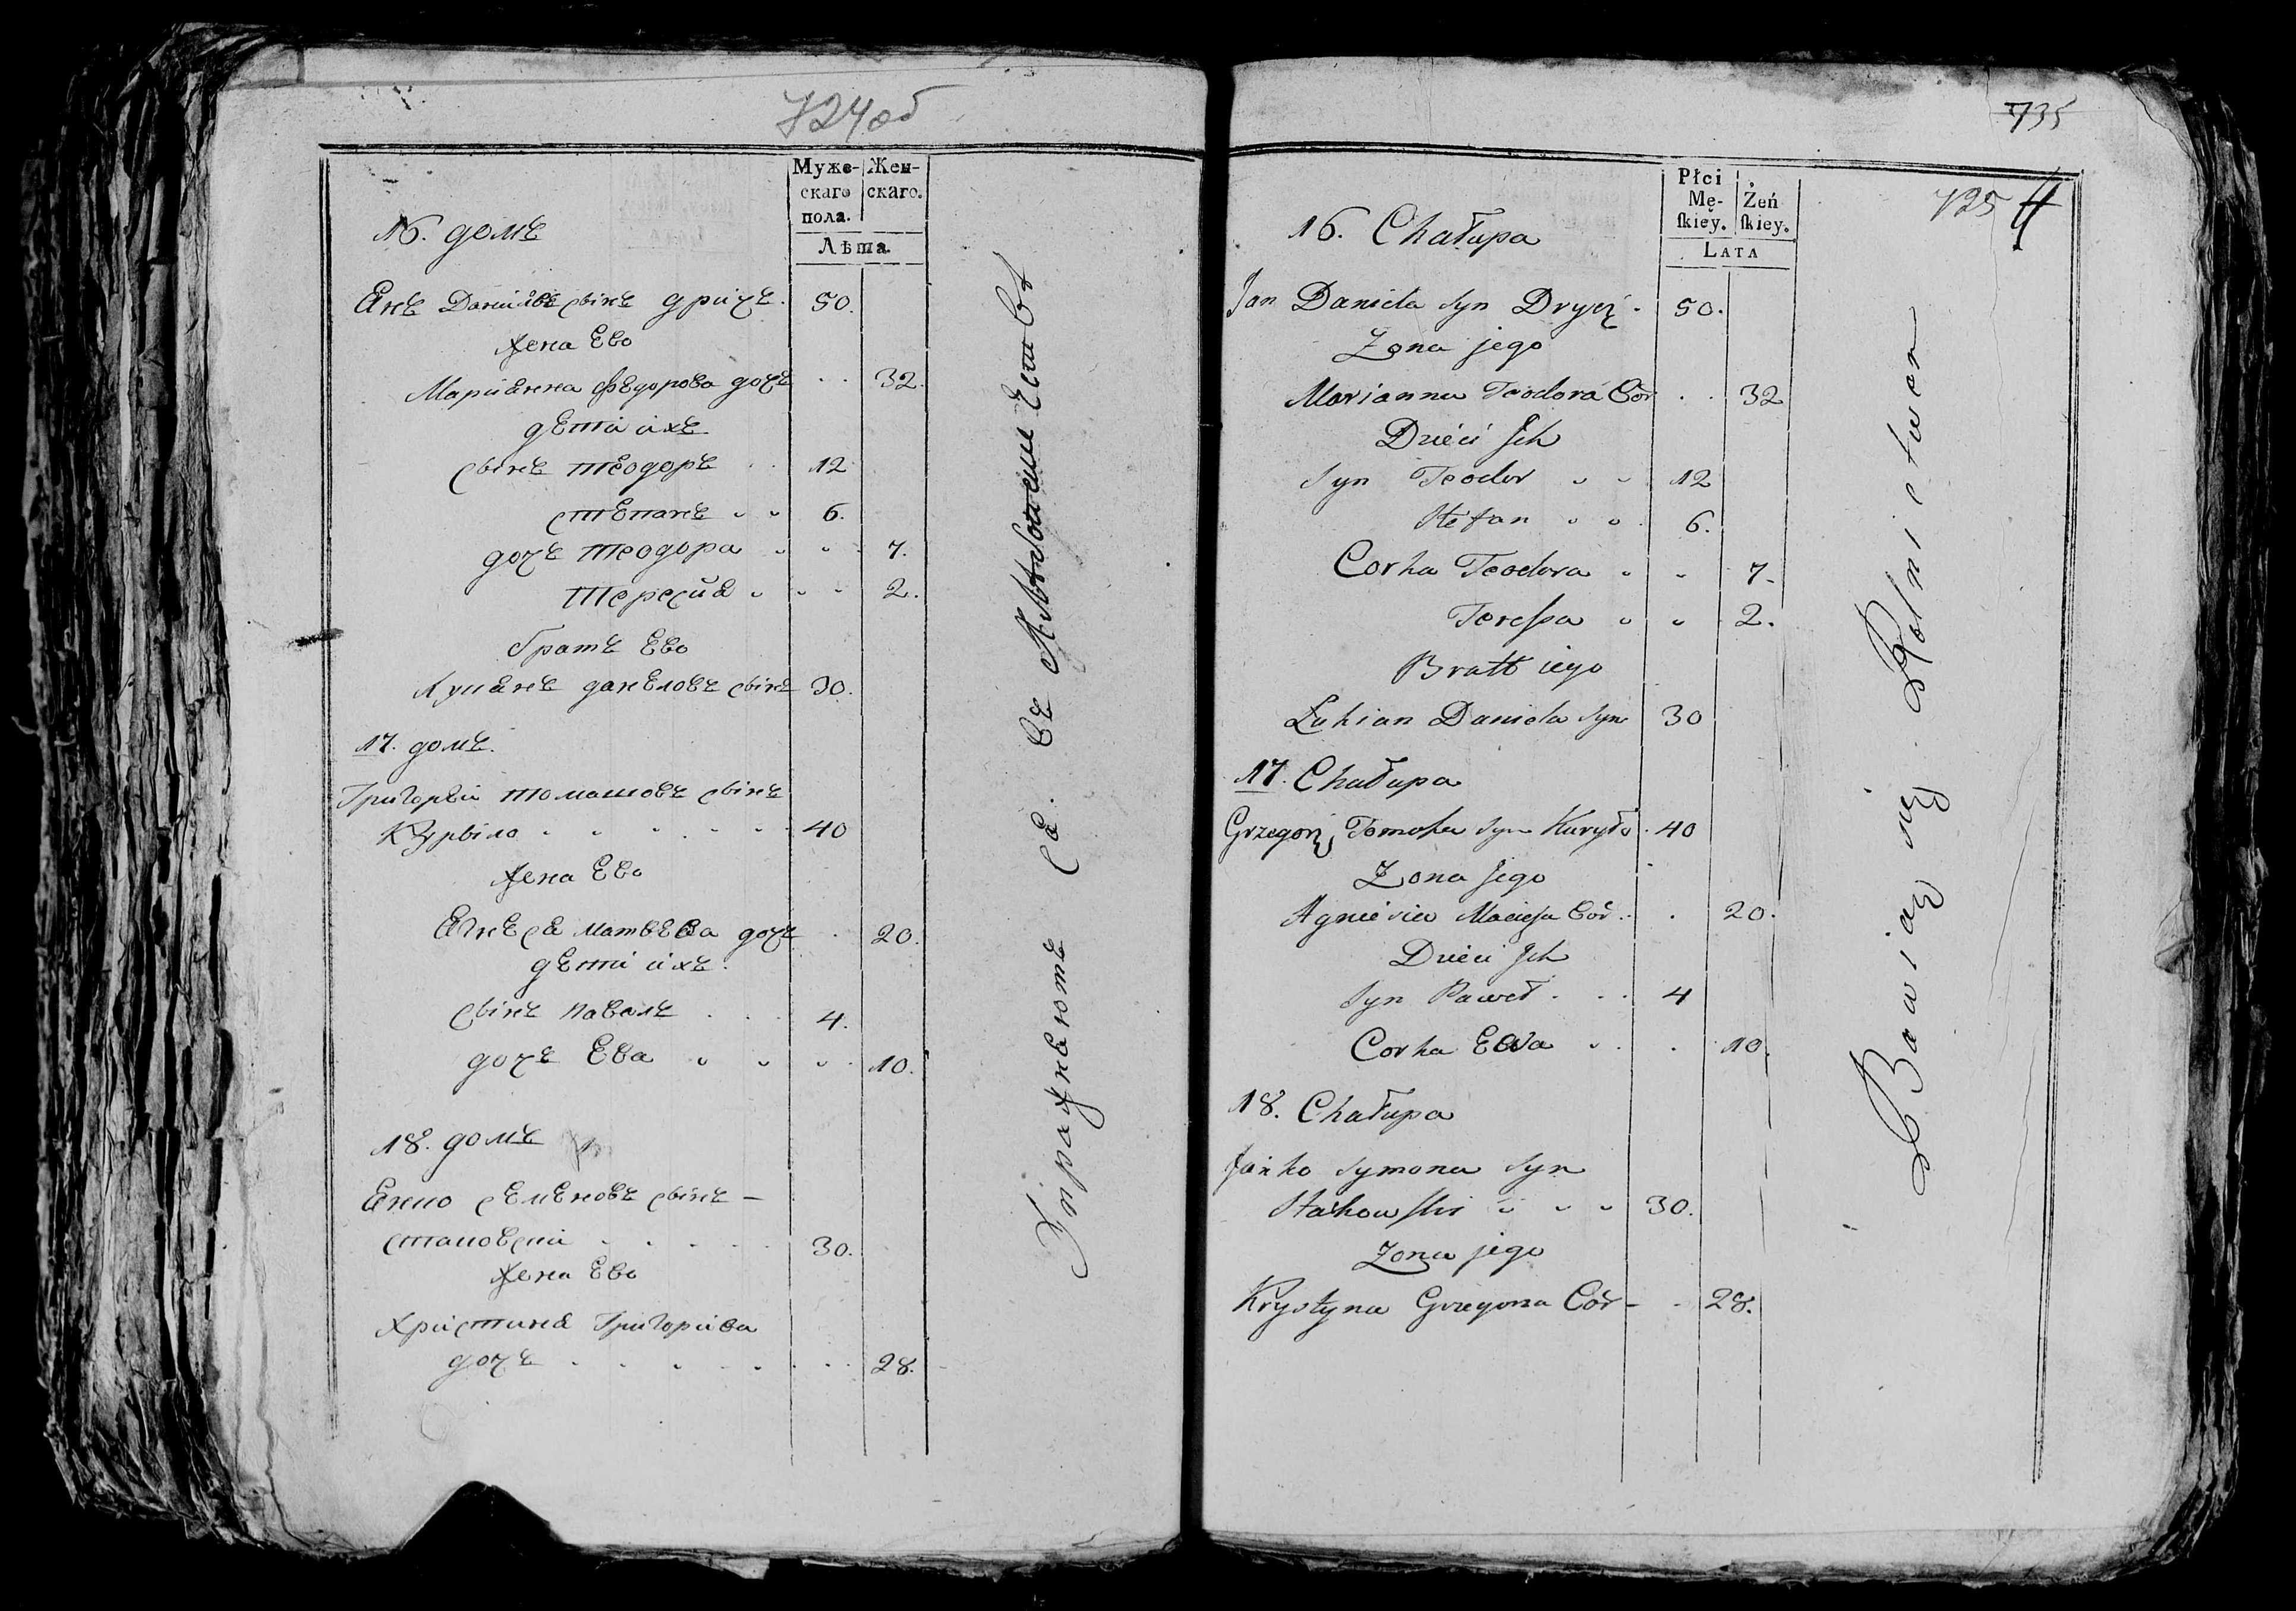 724об
Муже-
скаго
пола.
Жен-
скаго.
Лѣта
16. домъ
Янъ Данилавъ сынъ Дричъ. 50.
Жена Ево
Марианна Федорова дочъ 32.
дѣти ихъ
сынъ Теодоръ 12
Степанъ 6.
дочъ Теодора 7.
Тересиа 2.
Братъ Ево
Лукянъ Данѣловъ сынъ 30.
17. домъ.
Григорѣй Томашовъ сынъ
Курыло 40
Жена Ево
Агнѣса Матвѣва дочъ 20.
дѣти ихъ.
сынъ Павелъ 4.
дочъ Ева 10.
18. домъ
Янко Сѣмѣновъ сынъ —
Стаковски 30.
Жена Ево
Христина Григорива
дочъ 28.
Упражнвютъ ся. въ
735
725
4
Płci
Mę-
skiey.
Żeń
skiey.
Lata
16. Chałupa
Jan Daniela Syn Drycz 50.
Zona jego
Marianna Teodora Cór 32
Dzieci Jch
Syn Teodor 12
Stefan 6.
Corka Teodora 7
Teressa 2.
Bratt iego
Łukian Daniela Syn 30
17. Chałupa
Grzegorz Tomasza Syn Kuryło 40
Zona Jego
Agniesia Macieja Cór. 20.
Dzieci Jch
Syn Paweł 4
Corka Ewa 10.
18. Chałupa
Janko Symona Syn
Stakowski 30.
Zona jego
Krystyna Grzegorza Cór 28.
Bawiąą się Rolnictwem